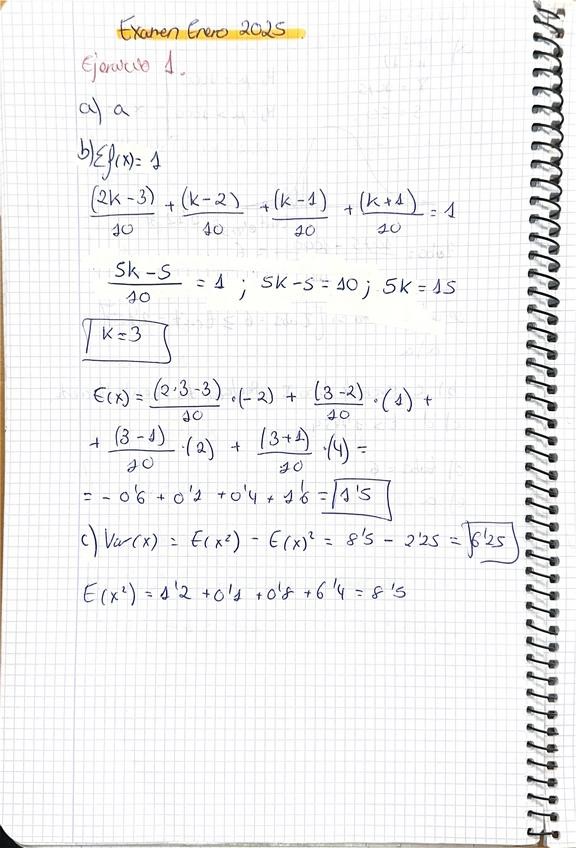 Examen Enero 2025.
Ejercicio 1.
a) a
b) Σf(x) = 1
(2k-3)/10 + (k-2)/10 + (k-1)/10 + (k+1)/10 = 1
5k-5/10 = 1 ; 5k-5 = 10 ; 5k = 15
k=3
E(x) = (2·3-3)/10 ·(-2) + (3-2)/10 ·(1) +
+ (3-1)/10 ·(2) + (3+1)/10 ·(4) =
= -0'6 + 0'1 + 0'4 + 1'6 = 1'5
c) Var(x) = E(x²) - E(x)² = 8'5 - 2'25 = 6'25
E(x²) = 1'2 + 0'1 + 0'8 + 6'4 = 8'5